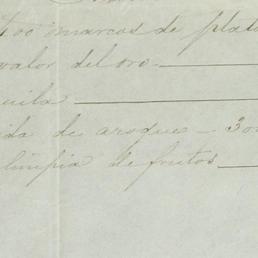 400 marcos de plat
valor del oro
uila
ida de azogue - 30
limpia de frutos